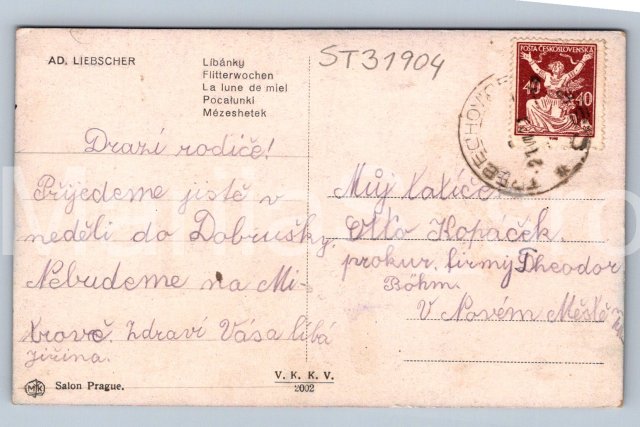 AD. LIEBSCHER
Líbánky
Flitterwochen
La lune de miel
Pocałunki
Mézeshetek
ST31904
POŠTA ČESKOSLOVENSKÁ
40 40
TŘEBECHOVICE
Drazí rodiče!
Přijedeme jistě v
neděli do Dobrušky.
Nebudeme na Mi-
trově. Zdraví Vás a líbá
Jiřina.
Můj
Otto Kopáček,
prokur. firmy Theodor
Böhm.
V Novém Městě
V. K. K. V.
2002
Salon Prague.